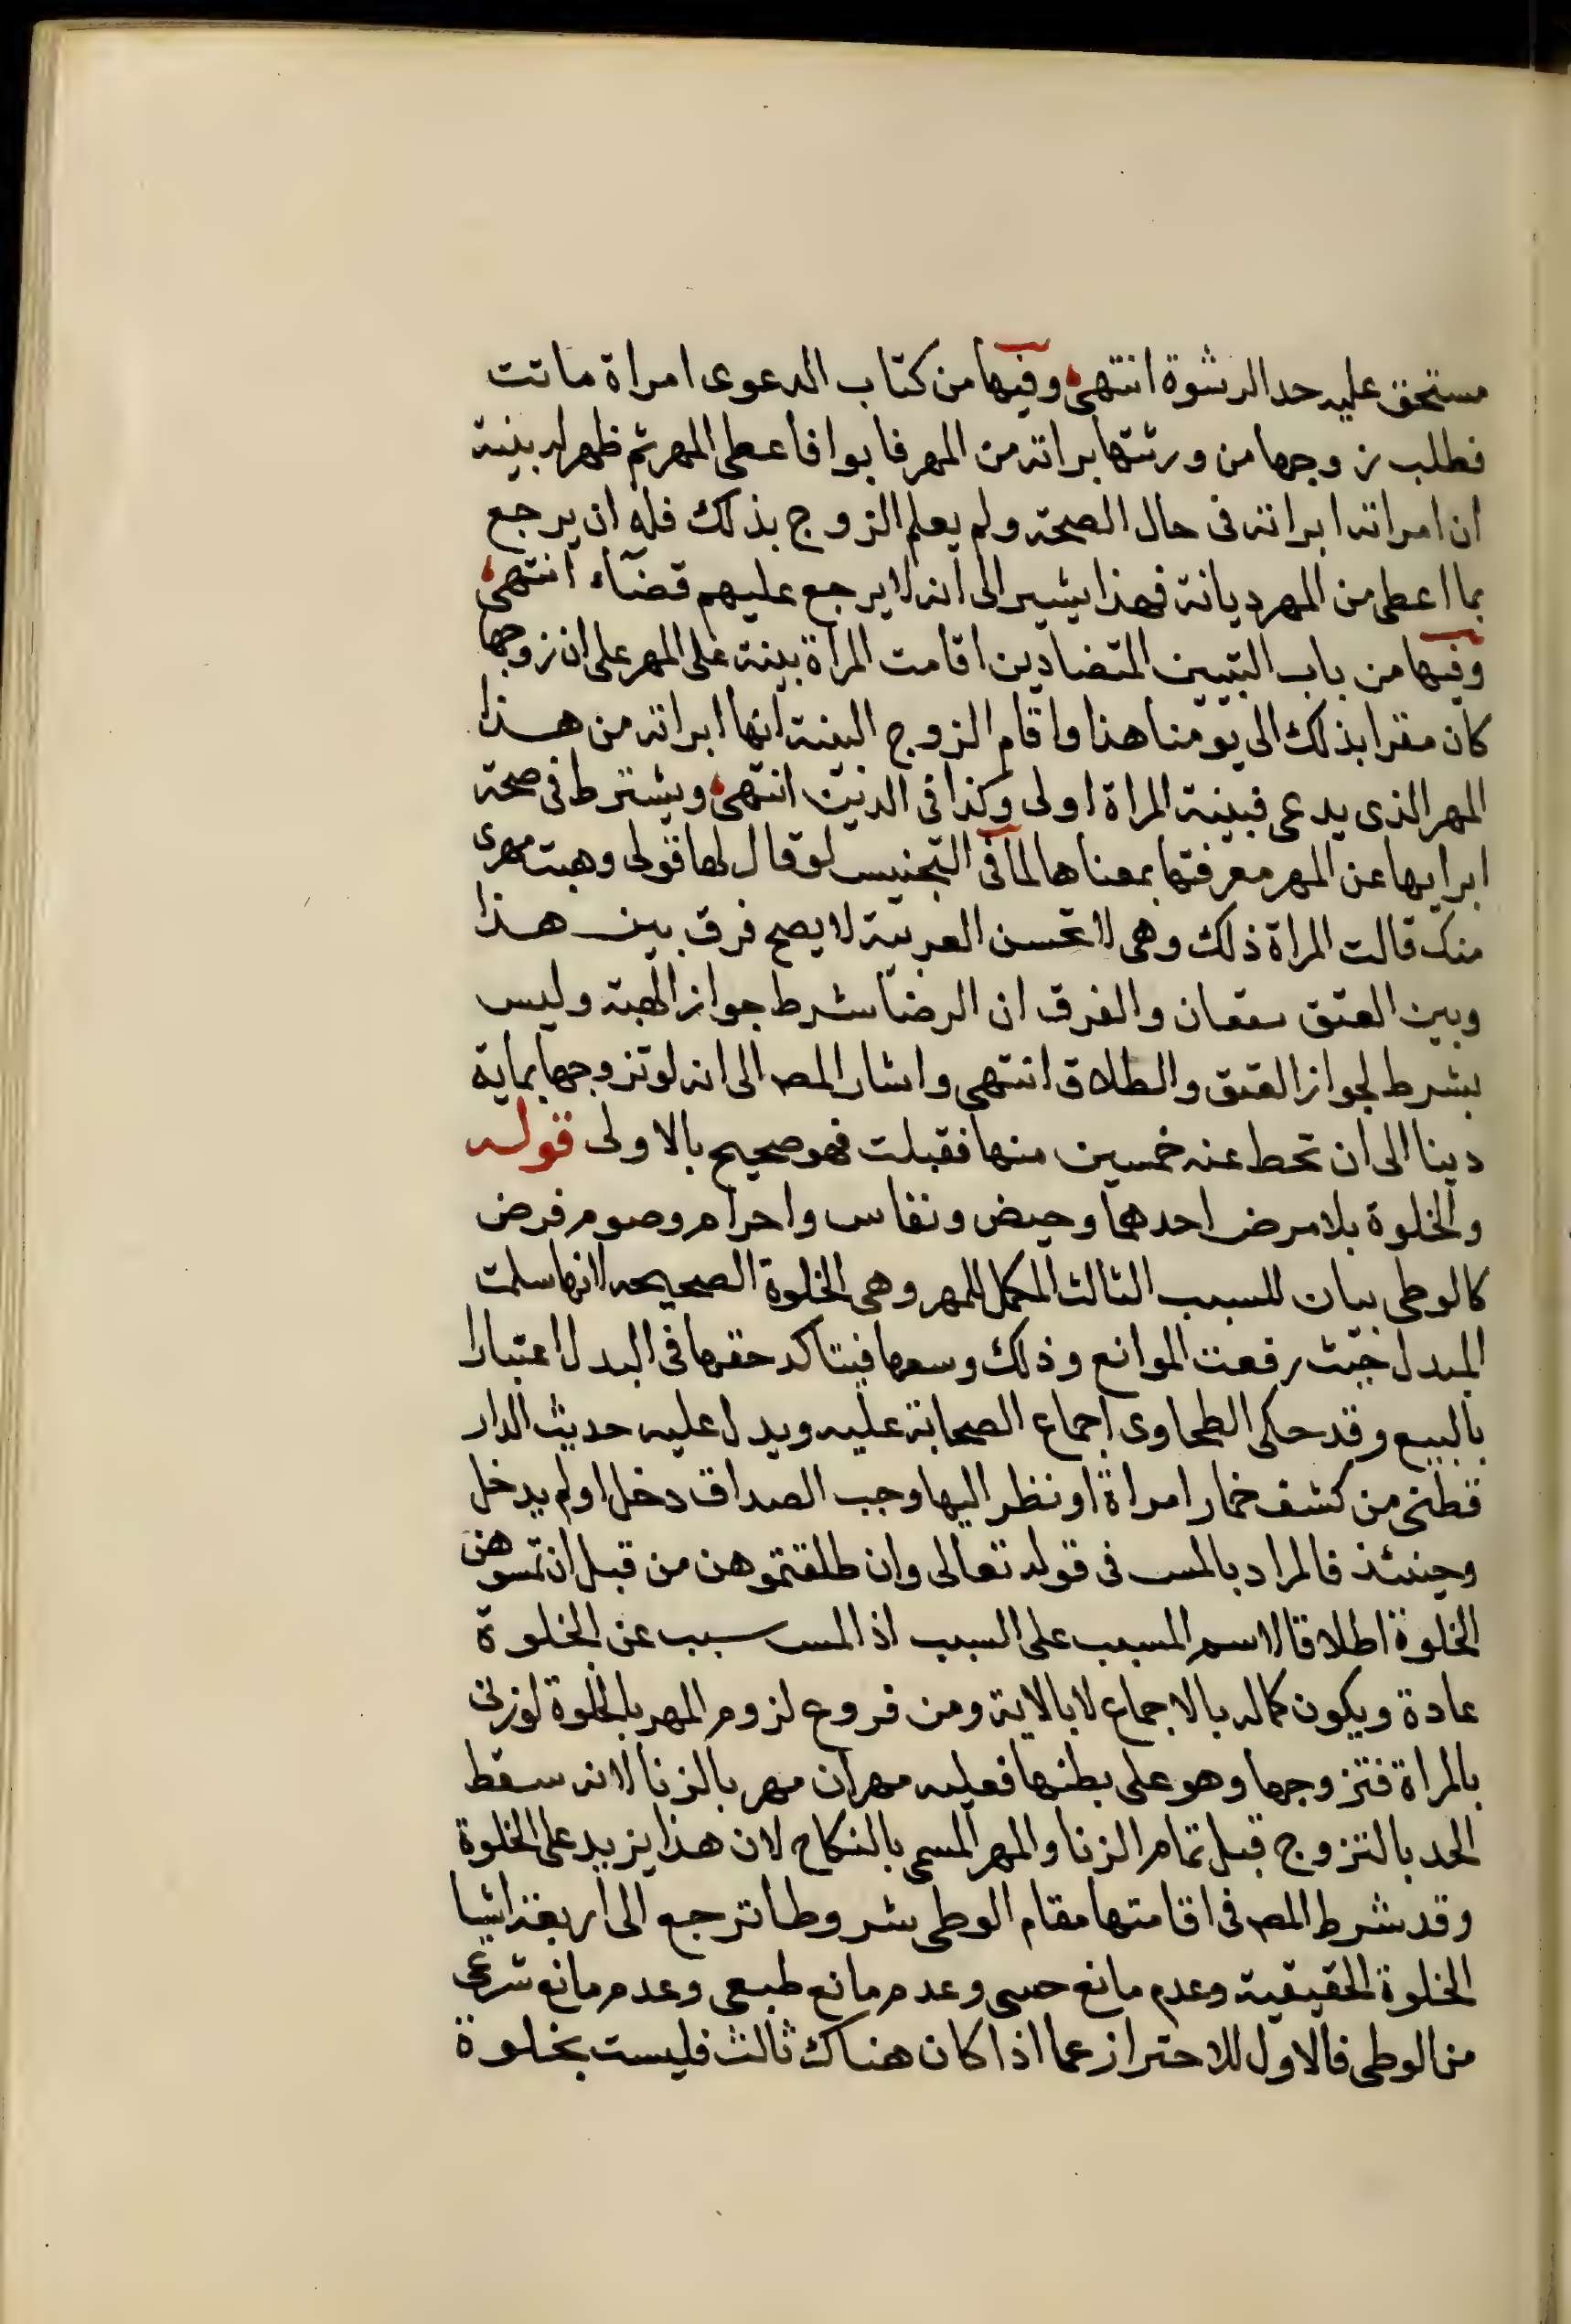 مستحق عليه حد الرشوة انتهى وفيها من كتاب الدعوى امراة ماتت
فطلب زوجها من ورثتها براته من المهر فابوا فاعطى المهر ثم ظهر له بينة
ان امراته ابراته فى حال الصحة ولم يعلم الزوج بذلك فله ان يرجع
بما اعطى من المهر ديانة فهذا يشير الى انه لا يرجع عليهم قضآء انتهى
وفيها من باب البتيين المتضادين اقامت المراة بينة على المهر على ان زوجها
كان مقرا بذلك الى يومنا هذا واقام الزوج البينة انها ابراته من هذا
المهر الذى يدعى فبينة المراة اولى وكذا فى الدين انتهى ويشترط فى صحة
ابرايها عن المهر معرفتها بمعناها لما فى التجنيس لو قال لها قولى وهبت مهرى
منك قالت المراة ذلك وهى لا تحسن العربية لا يصح فرق بين هذا
وبين العتق والفرق ان الرضا شرط جواز الهبة وليس
بشرط لجواز العتق والطلاق انتهى واشار المص الى انه لو تزوجها بماية
دينا الى ان تحط عنه خمسين منها فقبلت فهو صحيح بالاولى قوله
والخلوة بلا مرض احدهما وحيض ونفاس واحرام وصوم فرض
كالوطى بيان للسبب الثالث المكمل للمهر وهى الخلوة الصحيحه لانها سلمت
المبدل حيث رفعت الموانع وذلك وسعها فيتاكد حقها فى البدل اعتبارا
بالبيع وقد حكى الطحاوى اجماع الصحابة عليه ويدل عليه حديث الدار
قطنى من كشف خمار امراة او نظر اليها وجب الصداق دخل او لم يدخل
وحينئذ فالمراد بالمس فى قوله تعالى وان طلقتموهن من قبل ان تمسوهن
الخلوة اطلاقا لاسم المسبب على السبب اذ المس سبب عن الخلوة
عادة ويكون كماله بالاجماع لا بالاية ومن فروع لزوم المهر بالخلوة لو زنى
بالمراة فتزوجها وهو على بطنها فعليه مهران مهر بالزنا لانه سقط
الحد بالتزوج قبل تمام الزنا والمهر المسمى بالنكاح لان هذا يزيد على الخلوة
وقد شرط المص فى اقامتها مقام الوطى شروطا ترجع الى اربعة اشيا
الخلوة الحقيقية وعدم مانع حسى وعدم مانع طبعى وعدم مانع شرعى
من الوطى فالاول للاحتراز عما اذا كان هناك ثالث فليست بخلوة